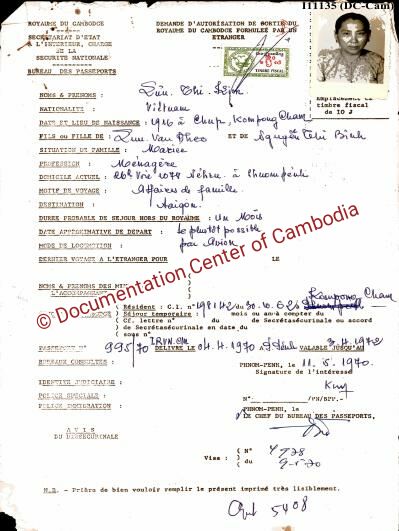 111135 (DC-Cam)
ROYAUME DU CAMBODGE
SECRETARIAT D'ETAT
A L'INTERIEUR, CHARGE
DE LA
SECURITE NATIONALE
BUREAU DES PASSEPORTS
DEMANDE D'AUTORISATION DE SORTIE DU
ROYAUME DU CAMBODGE FORMULEE PAR UN
ETRANGER
TIMBRE FISCAL
timbre fiscal
de 10 J
NOMS & PRENOMS : Thi
NATIONALITE : Vietnam
DATE ET LIEU DE NAISSANCE : 1916 à Chup, Kompong Cham
FILS ou FILLE DE : Van ET DE Nguyên Thi Binh
SITUATION DE FAMILLE : Mariée
PROFESSION : Ménagère
DOMICILE ACTUEL : Nehru. à Phnompenh
MOTIF DE VOYAGE : Affaires de famille
DESTINATION : Saigon.
DUREE PROBABLE DE SEJOUR HORS DU ROYAUME : Un Mois
DATE APPROXIMATIVE DE DEPART : le plus tôt possible
MODE DE LOCOMOTION : par Avion
DERNIER VOYAGE A L'ETRANGER POUR LE
NOMS & PRENOMS DES
L'ACCOMPAGNANT
Kompong Cham
Résident : C.I. n° 198142 du
Séjour temporaire : mois ou an à compter du
Cf. lettre n° du du Secrétasécunale ou accord
de Secrétasécunale en date du
sous n°
PASSEPORT N° 99570 DELIVRE LE 04.4.1970 VALABLE JUSQU'AU 3.4.1972
BUREAUX CONSULTES :
PHNOM-PENH, le 11.5.1970.
Signature de l'intéressé
IDENTITE JUDICIAIRE :
POLICE SPECIALE :
POLICE IMMIGRATION :
N° /PN/BPP.-
PHNOM-PENH, le
LE CHEF DU BUREAU DES PASSEPORTS,
AVIS
DU DIRSECURUNALE
Visa : ( N° 4778
( du
N.B. - Prière de bien vouloir remplir le présent imprimé très lisiblement.
5408
© Documentation Center of Cambodia